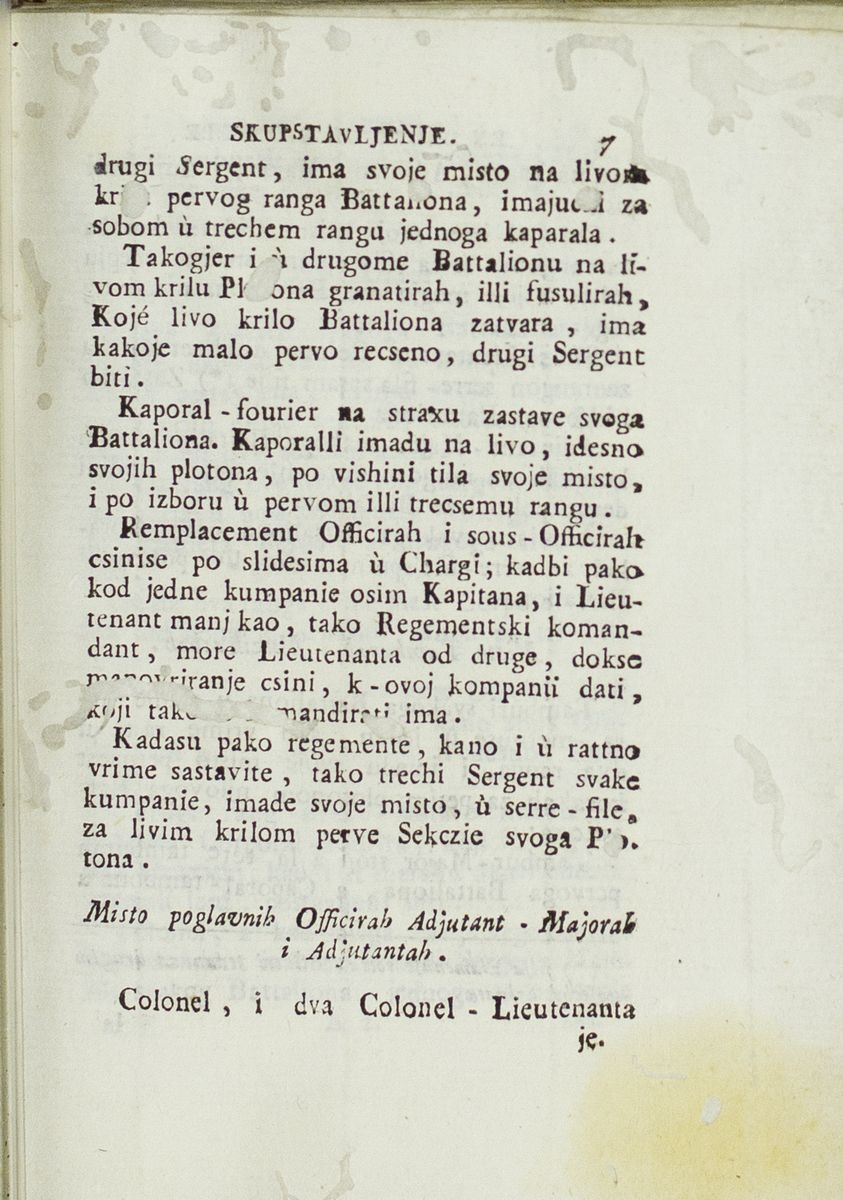 SKUPSTAVLJENJE. 7
drugi Sergent, ima svoje misto na livom
pervog ranga Battaliona, imajuchi za
sobom ù trechem rangu jednoga kaparala.
Takogjer i ù drugome Battalionu na li-
vom krilu Plotona granatirah, illi fusulirah,
Kojé livo krilo Battaliona zatvara, ima
kakoje malo pervo recseno, drugi Sergent
biti.
Kaporal-fourier na straxu zastave svoga
Battaliona. Kaporalli imadu na livo, idesno
svojih plotona, po vishini tila svoje misto,
i po izboru ù pervom illi trecsemu rangu.
Remplacement Officirah i sous-Officirah
csinise po slidesima ù Chargi; kadbi pako
kod jedne kumpanie osim Kapitana, i Lieu-
tenant manj kao, tako Regementski koman-
dant, more Lieutenanta od druge, dokse
manovriranje csini, k-ovoj kompanii dati,
koji ima.
Kadasu pako regemente, kano i ù rattno
vrime sastavite, tako trechi Sergent svake
kumpanie, imade svoje misto, ù serre-file,
za livim krilom perve Sekczie svoga Plo-
tona.
Misto poglavnih Officirah Adjutant-Majorah
i Adjutantah.
Colonel, i dva Colonel-Lieutenanta
je.